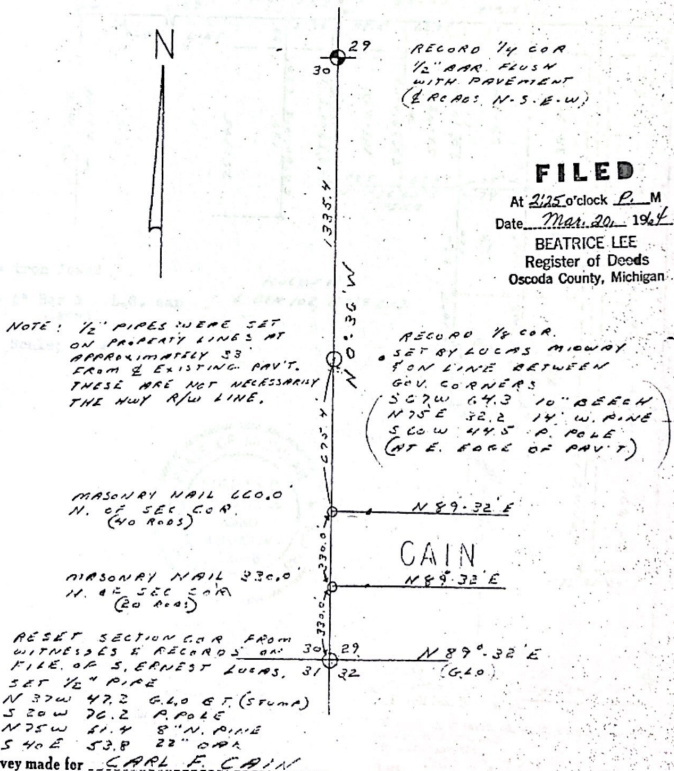 N
30 29
RECORD 1/4 COR
1/2" BAR FLUSH
WITH PAVEMENT
(℄ ROADS N-S-E-W)
FILED
At 2:25 o'clock P. M
Date Mar. 20, 1964
BEATRICE LEE
Register of Deeds
Oscoda County, Michigan
1335.4'
NOTE: 1/2" PIPES WERE SET
ON PROPERTY LINES AT
APPROXIMATELY 33'
FROM ℄ EXISTING PAV'T.
THESE ARE NOT NECESSARILY
THE HWY R/W LINE.
RECORD 1/8 COR.
SET BY LUCAS MIDWAY
& ON LINE BETWEEN
GOV. CORNERS
S67W 64.3 10" BEECH
N75E 32.2 14" W. PINE
S60W 44.5 P. POLE
(AT E. EDGE OF PAV'T)
675.4'
MASONRY NAIL 660.0'
N. OF SEC COR.
(40 RODS)
N 89-32' E
330.0'
CAIN
MASONRY NAIL 330.0'
N. OF SEC COR
(20 RODS)
N 89°-32' E
330.0'
RESET SECTION COR FROM
WITNESSES & RECORDS ON
FILE OF S. ERNEST LUCAS.
SET 1/2" PIPE
N 37W 47.2 G.L.O B.T. (STUMP)
S 20W 76.2 P. POLE
N 75W 61.4 8" N. PINE
S 40E 53.8 22" OAK
30 29
31 32
N 89°-32' E
(G.L.O)
vey made for CARL F. CAIN